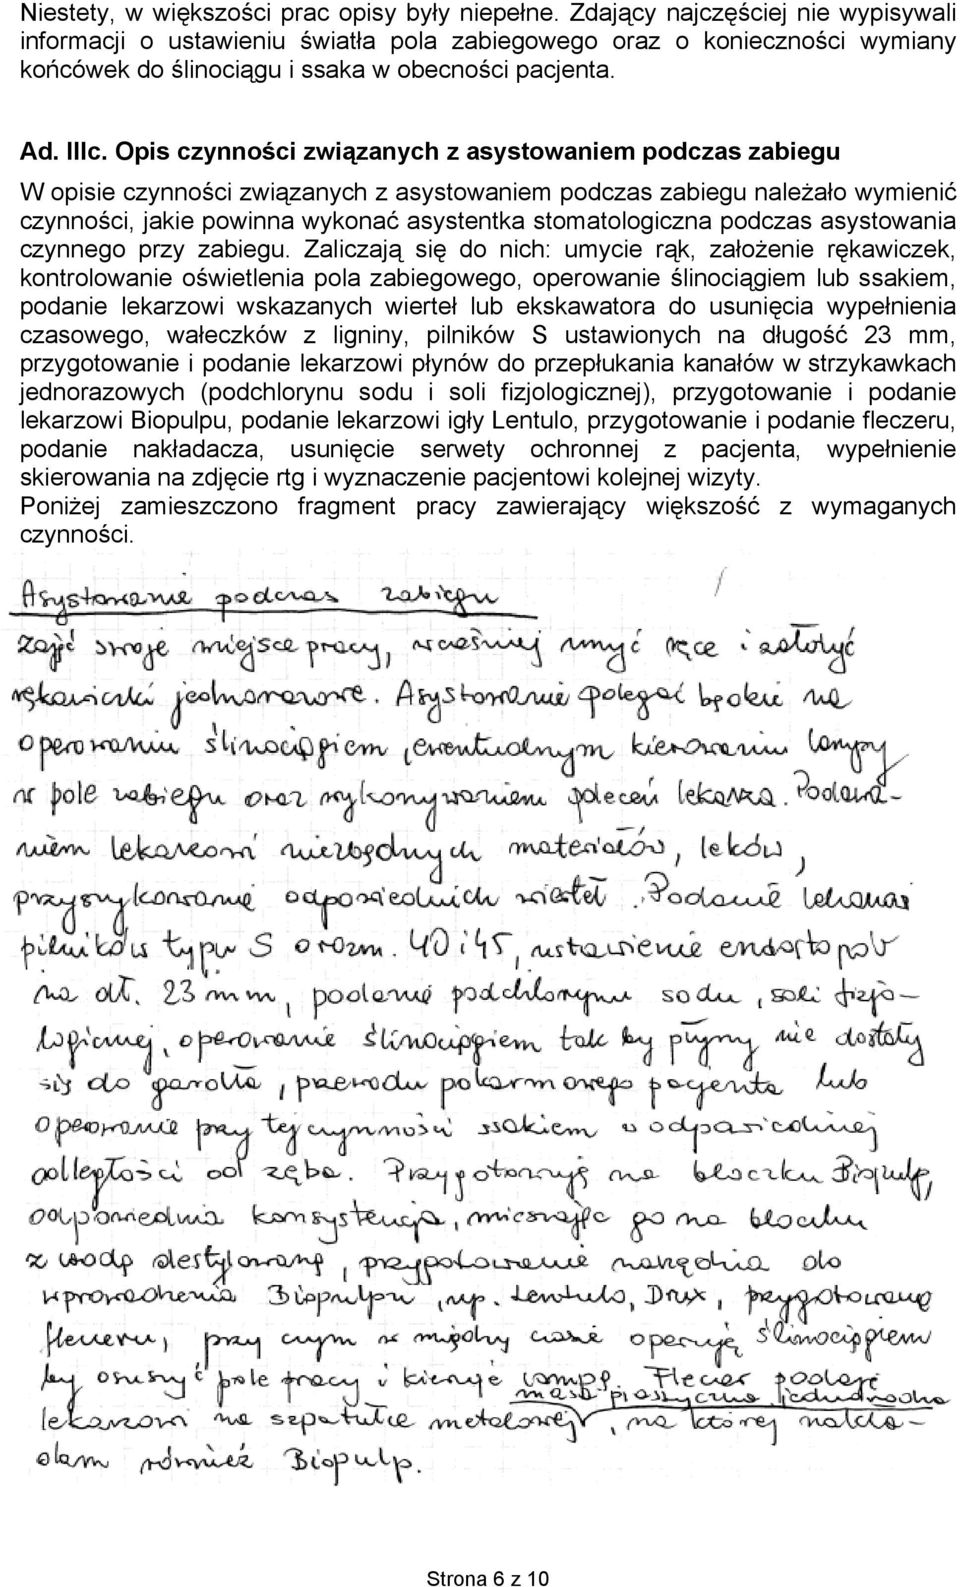 Niestety, w większości prac opisy były niepełne. Zdający najczęściej nie wypisywali
informacji o ustawieniu światła pola zabiegowego oraz o konieczności wymiany
końcówek do ślinociągu i ssaka w obecności pacjenta.
Ad. IIIc. Opis czynności związanych z asystowaniem podczas zabiegu
W opisie czynności związanych z asystowaniem podczas zabiegu należało wymienić
czynności, jakie powinna wykonać asystentka stomatologiczna podczas asystowania
czynnego przy zabiegu. Zaliczają się do nich: umycie rąk, założenie rękawiczek,
kontrolowanie oświetlenia pola zabiegowego, operowanie ślinociągiem lub ssakiem,
podanie lekarzowi wskazanych wierteł lub ekskawatora do usunięcia wypełnienia
czasowego, wałeczków z ligniny, pilników S ustawionych na długość 23 mm,
przygotowanie i podanie lekarzowi płynów do przepłukania kanałów w strzykawkach
jednorazowych (podchlorynu sodu i soli fizjologicznej), przygotowanie i podanie
lekarzowi Biopulpu, podanie lekarzowi igły Lentulo, przygotowanie i podanie fleczeru,
podanie nakładacza, usunięcie serwety ochronnej z pacjenta, wypełnienie
skierowania na zdjęcie rtg i wyznaczenie pacjentowi kolejnej wizyty.
Poniżej zamieszczono fragment pracy zawierający większość z wymaganych
czynności.
Asystowanie podczas zabiegu
Zająć swoje miejsce pracy, wcześniej umyć ręce i założyć
rękawiczki jednorazowe. Asystowanie polegać będzie na
operowaniu ślinociągiem, ewentualnym kierowaniu lampy
w pole zabiegu oraz wykonywaniem poleceń lekarza. Podawa-
niem lekarzowi niezbędnych materiałów, leków,
przyszykowanie odpowiednich wierteł. Podanie lekarzowi
pilników typu S o rozm. 40 i 45, ustawienie endostopów
na dł. 23 mm, podanie podchlorynu sodu, soli fizjo-
logicznej, operowanie ślinociągiem tak by płyny nie dostały
się do gardła, przewodu pokarmowego pacjenta lub
operowanie przy tej czynności ssakiem w odpowiedniej
odległości od zęba. Przygotowuję na bloczku Biopulp,
odpowiednia konsystencja, mieszając go na bloczku
z wodą destylowaną, przygotowanie narzędnia do
wprowadzenia Biopulpu, np. Lentulo, Drux, przygotowanie
fleczeru, przy czym w między czasie operuję ślinociągiem
by osuszyć pole pracy i kieruję lampą. Fleczer podaję
masa plastyczna jednorodna
lekarzowi na szpatułce metalowej, na której nakła-
dam również Biopulp.
Strona 6 z 10